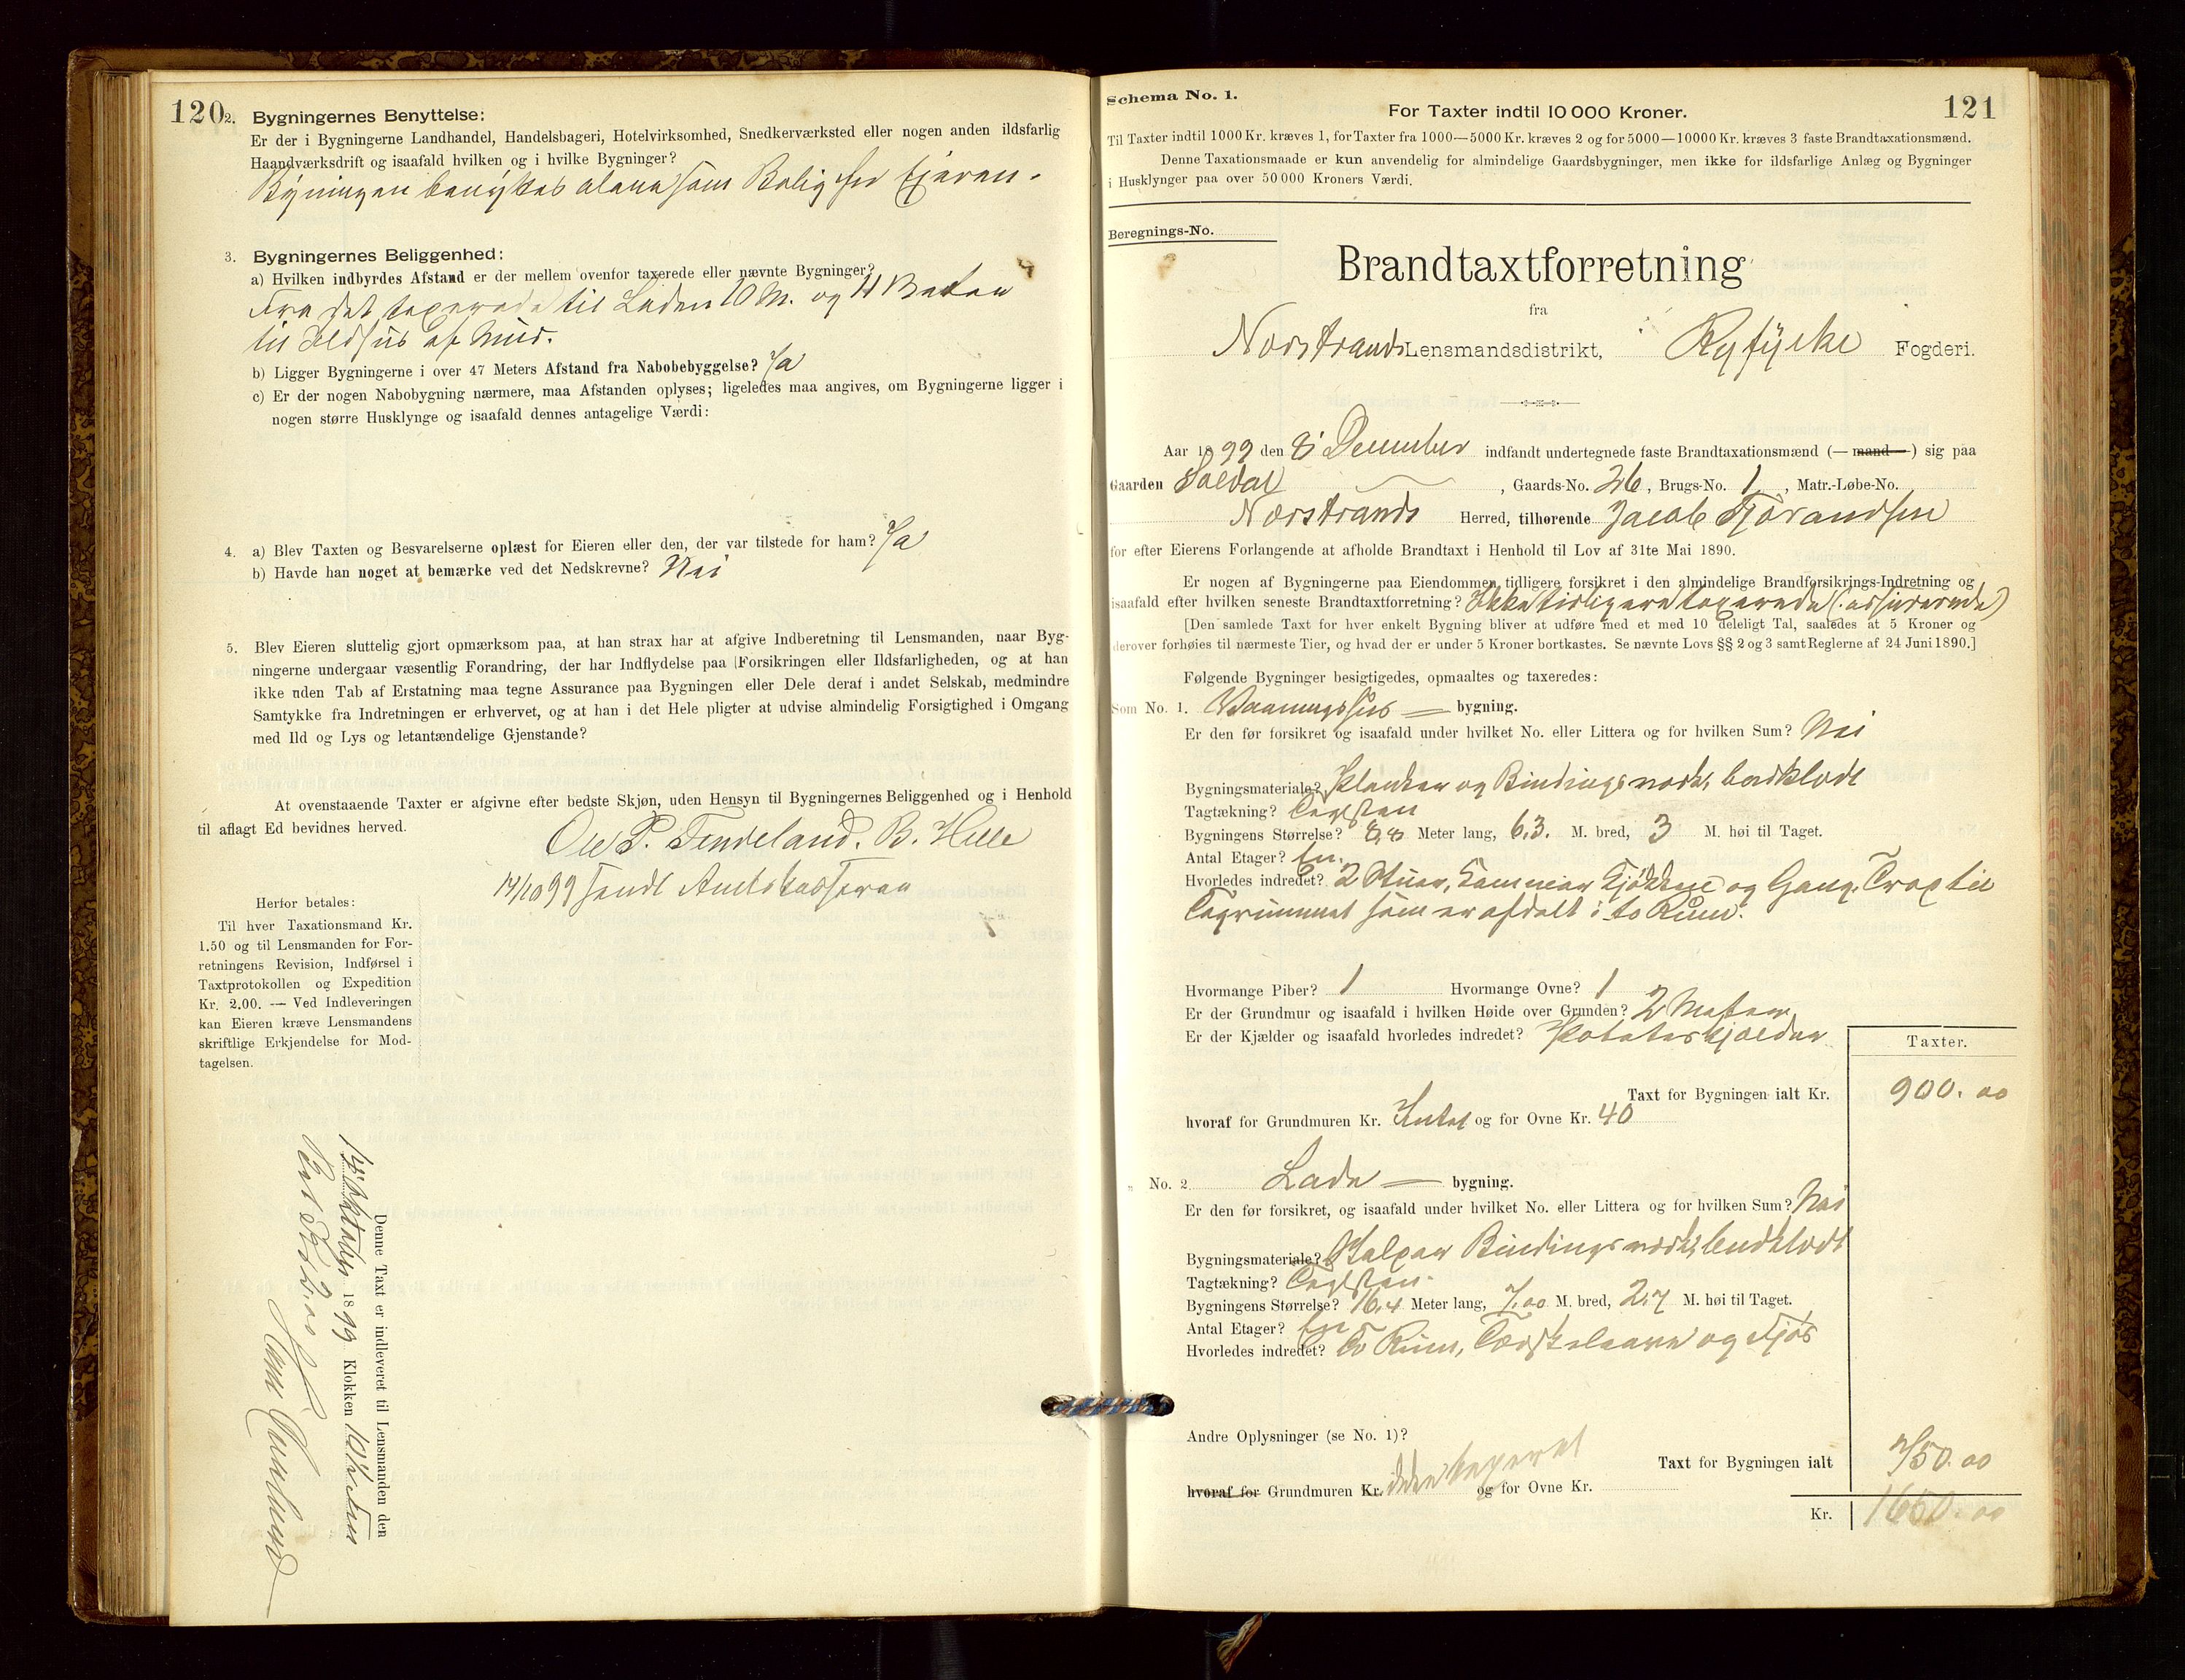 120
2. Bygningernes Benyttelse:
Er der i Bygningerne Landhandel, Handelsbageri, Hotelvirksomhed, Snedkerværksted eller nogen anden ildsfarlig
Haandværksdrift og isaafald hvilken og i hvilke Bygninger?
Bygningen benyttes alene som Bolig for Ejeren.
3. Bygningernes Beliggenhed:
a) Hvilken indbyrdes Afstand er der mellem ovenfor taxerede eller nævnte Bygninger?
Fra det taxerede til Laden 10 M. og 11 Meter
til Ildhus af Mur.
b) Ligger Bygningerne i over 47 Meters Afstand fra Nabobebyggelse? Ja
c) Er der nogen Nabobygning nærmere, maa Afstanden oplyses; ligeledes maa angives, om Bygningerne ligger i
nogen større Husklynge og isaafald dennes antagelige Værdi:
4. a) Blev Taxten og Besvarelserne oplæst for Eieren eller den, der var tilstede for ham? Ja
b) Havde han noget at bemærke ved det Nedskrevne? Nei
5. Blev Eieren sluttelig gjort opmærksom paa, at han strax har at afgive Indberetning til Lensmanden, naar Byg-
ningerne undergaar væsentlig Forandring, der har Indflydelse paa Forsikringen eller Ildsfarligheden, og at han
ikke uden Tab af Erstatning maa tegne Assurance paa Bygningen eller Dele deraf i andet Selskab, medmindre
Samtykke fra Indretningen er erhvervet, og at han i det Hele pligter at udvise almindelig Forsigtighed i Omgang
med Ild og Lys og letantændelige Gjenstande?
At ovenstaaende Taxter er afgivne efter bedste Skjøn, uden Hensyn til Bygningernes Beliggenhed og i Henhold
til aflagt Ed bevidnes herved.
Ole P. Tendeland. B. Hille
14/10 99 sendt Amtskasseren
Herfor betales:
Til hver Taxationsmand Kr.
1.50 og til Lensmanden for For-
retningens Revision, Indførsel i
Taxtprotokollen og Expedition
Kr. 2.00. — Ved Indleveringen
kan Eieren kræve Lensmandens
skriftlige Erkjendelse for Mod-
tagelsen.
Denne Taxt er indleveret til Lensmanden den
Oktober 1899 Klokken
121
Schema No. 1.
For Taxter indtil 10 000 Kroner.
Til Taxter indtil 1000 Kr. kræves 1, for Taxter fra 1000—5000 Kr. kræves 2 og for 5000—10000 Kr. kræves 3 faste Brandtaxationsmænd.
Denne Taxationsmaade er kun anvendelig for almindelige Gaardsbygninger, men ikke for ildsfarlige Anlæg og Bygninger
i Husklynger paa over 50 000 Kroners Værdi.
Beregnings-No.
Brandtaxtforretning
fra
Norstrands Lensmandsdistrikt, Ryfylke Fogderi.
Aar 1899 den 8 December indfandt undertegnede faste Brandtaxationsmænd (—mand—) sig paa
Gaarden , Gaards-No. 26, Brugs-No. 1, Matr.-Løbe-No.
Nærstrands Herred, tilhørende Jacob Tjørandsen
for efter Eierens Forlangende at afholde Brandtaxt i Henhold til Lov af 31te Mai 1890.
Er nogen af Bygningerne paa Eiendommen tidligere forsikret i den almindelige Brandforsikrings-Indretning og
isaafald efter hvilken seneste Brandtaxtforretning? Ikke tidligere taxerede (assurerede)
[Den samlede Taxt for hver enkelt Bygning bliver at udføre med et med 10 deleligt Tal, saaledes at 5 Kroner og
derover forhøies til nærmeste Tier, og hvad der er under 5 Kroner bortkastes. Se nævnte Lovs §§ 2 og 3 samt Reglerne af 24 Juni 1890.]
Følgende Bygninger besigtigedes, opmaaltes og taxeredes:
Som No. 1. Vaaningshus bygning.
Er den før forsikret og isaafald under hvilket No. eller Littera og for hvilken Sum? Nei
Bygningsmateriale? Planker og Bindingsverk, bordklædt
Tagtækning? Taglsten
Bygningens Størrelse? 8,8 Meter lang, 6,3. M. bred, 3 M. høi til Taget.
Antal Etager? En.
Hvorledes indredet? 2 Stuer, Kammer Kjøkken og Gang. Trap til
Tagrummet som er afdelt i to Rum.
Hvormange Piber? 1 Hvormange Ovne? 1
Er der Grundmur og isaafald i hvilken Høide over Grunden? 2 Meter
Er der Kjælder og isaafald hvorledes indredet? Poteteskjælder
Taxter.
Taxt for Bygningen ialt Kr. 900.00
hvoraf for Grundmuren Kr. Intet og for Ovne Kr. 40
" No. 2 Lade bygning.
Er den før forsikret, og isaafald under hvilket No. eller Littera og for hvilken Sum? Nei
Bygningsmateriale? Stolper Bindingsverk, bordklædt
Tagtækning? Taglsten.
Bygningens Størrelse? 16,4 Meter lang, 7,00 M. bred, 2,7 M. høi til Taget.
Antal Etager? En
Hvorledes indredet? To Rum, Tærskelaave og Fjøs
Andre Oplysninger (se No. 1)?
Taxt for Bygningen ialt 750.00
hvoraf for Grundmuren Kr. ikke taxeret og for Ovne Kr.
Kr. 1650.00